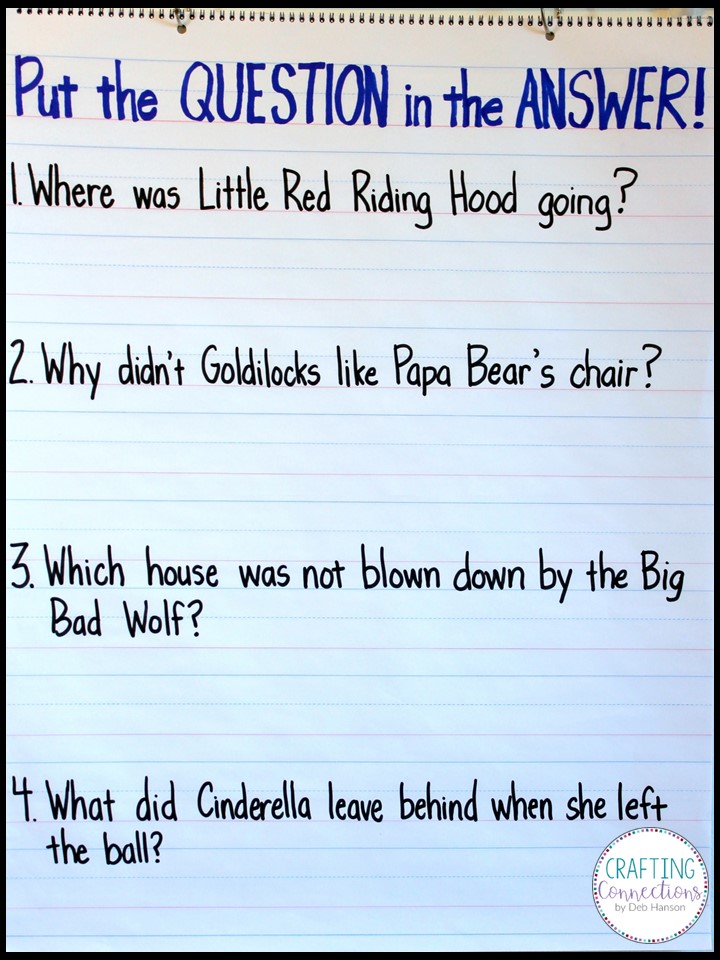 Put the QUESTION in the ANSWER!
1. Where was Little Red Riding Hood going?
2. Why didn't Goldilocks like Papa Bear's chair?
3. Which house was not blown down by the Big
Bad Wolf?
4. What did Cinderella leave behind when she left
the ball?
CRAFTING
Connections
by Deb Hanson